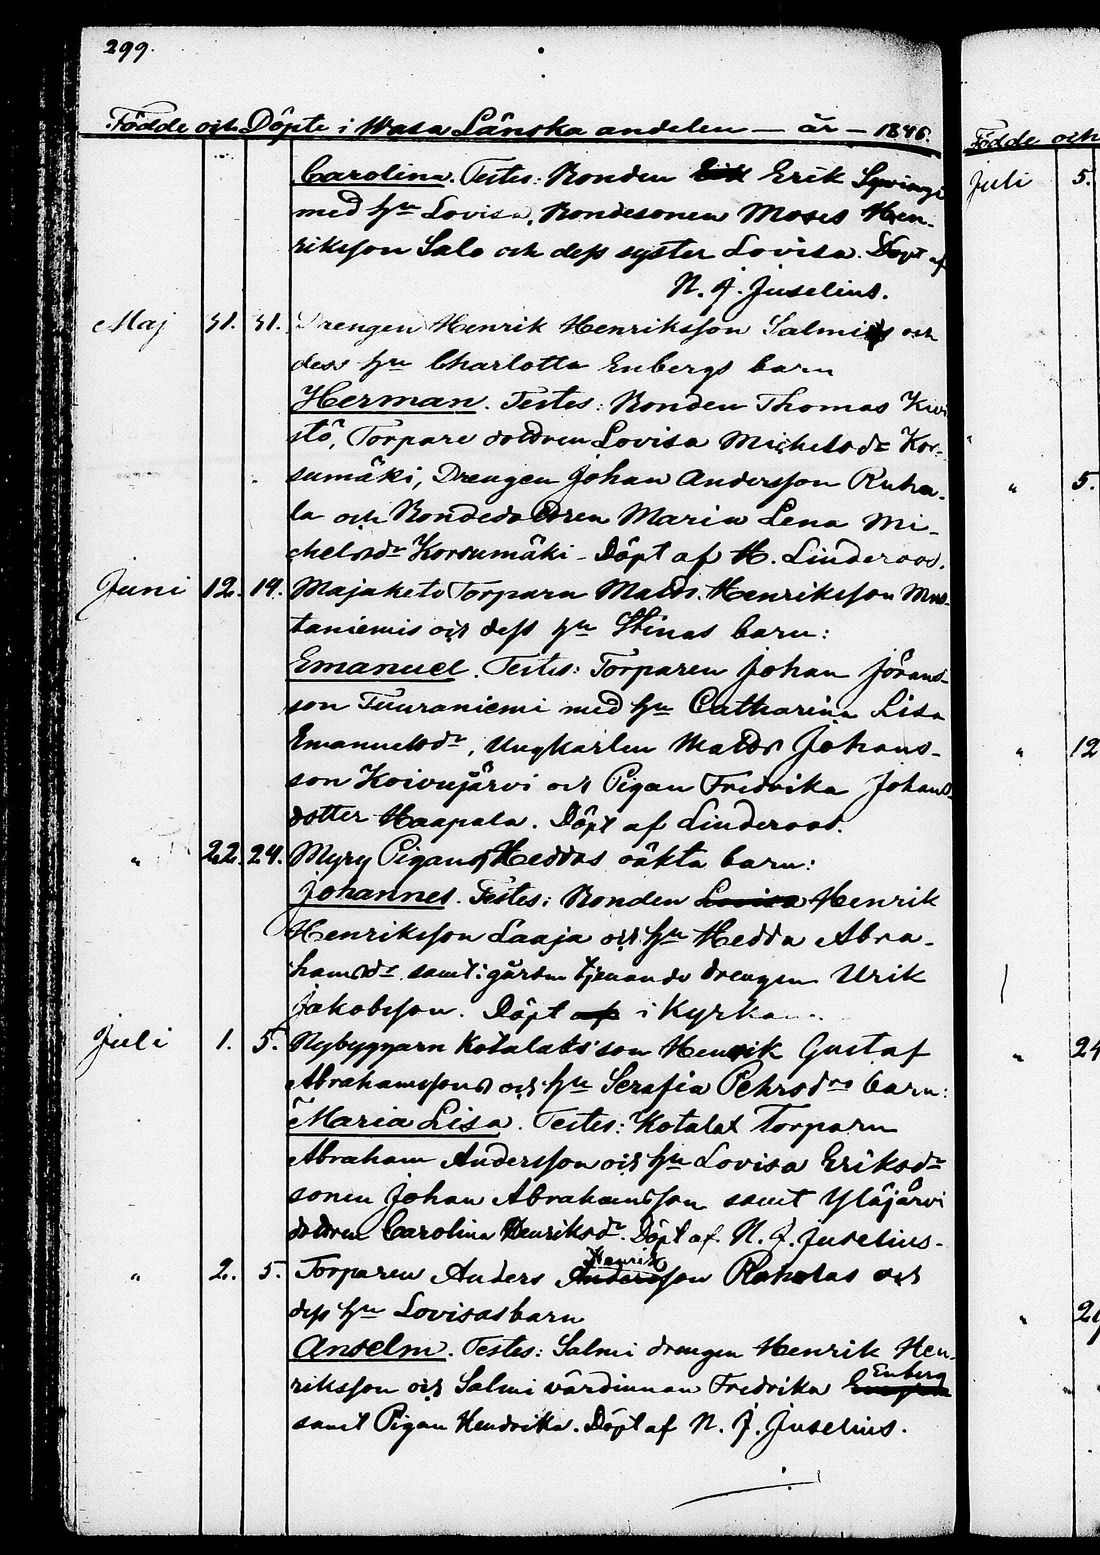 299.
Födde och Döpte i Wasa Länska andelen — år — 1846.
Carolina. Testes: Bonden Erik
med hu Lovisa, Bondesonen Moses Hen-
riksson Salo och dess syster Lovisa. Döpt af
N. J. Juselius.
Maj 31. 31. Drengen Henrik Henriksson Salmis och
dess hu Charlotta Enbergs barn
Herman. Testes: Bonden Thomas Kivi
stö, Torpare dottren Lovisa Michelsdr Kor-
sumäki, Drengen Johan Andersson Ruha-
la och Bondedottren Maria Lena Mi-
chelsdr Korsumäki - Döpt af H. Linderoos.
Juni 12. 14. Majakets Torparn Matts Henriksson Mus-
taniemis och dess hu Stinas barn:
Emanuel. Testes: Torparen Johan Jörans-
son Tuuraniemi med hu Catharina Lisa
Emanuelsdr, Ungkarlen Matts Johans-
son Koivujärvi och Pigan Fredrika Johans
dotter Haapala. Döpt af Linderoos.
" 22. 24. Myry Pigans Heddas oäkta barn:
Johannes. Testes: Bonden Lovisa Henrik
Henriksson Laaja och hu Hedda Abra-
hamsdr samt i gården tjenande drengen Urik
Jakobsson. Döpt af i Kyrkan.
Juli 1. 5. Nybyggarn Kotalats'son Henrik Gustaf
Abrahamssons och hu Serafia Pehrsdrs barn:
Maria Lisa. Testes: Kotalat Torparn
Abraham Andersson och hu Lovisa Eriksdr
sonen Johan Abrahamsson samt Yläjärvi
dottren Carolina Henriksdr. Döpt af N. J. Juselius.
" 2. 5. Torparen Anders Henriksson Ruhalas och
dess hu Lovisas barn
Anselm. Testes: Salmi drengen Henrik Hen-
riksson och Salmi värdinnan Fredrika Enberg
samt Pigan Hendrika. Döpt af N. J. Juselius.
Födde och
Juli 5.
" 5.
" 12
" 24
"